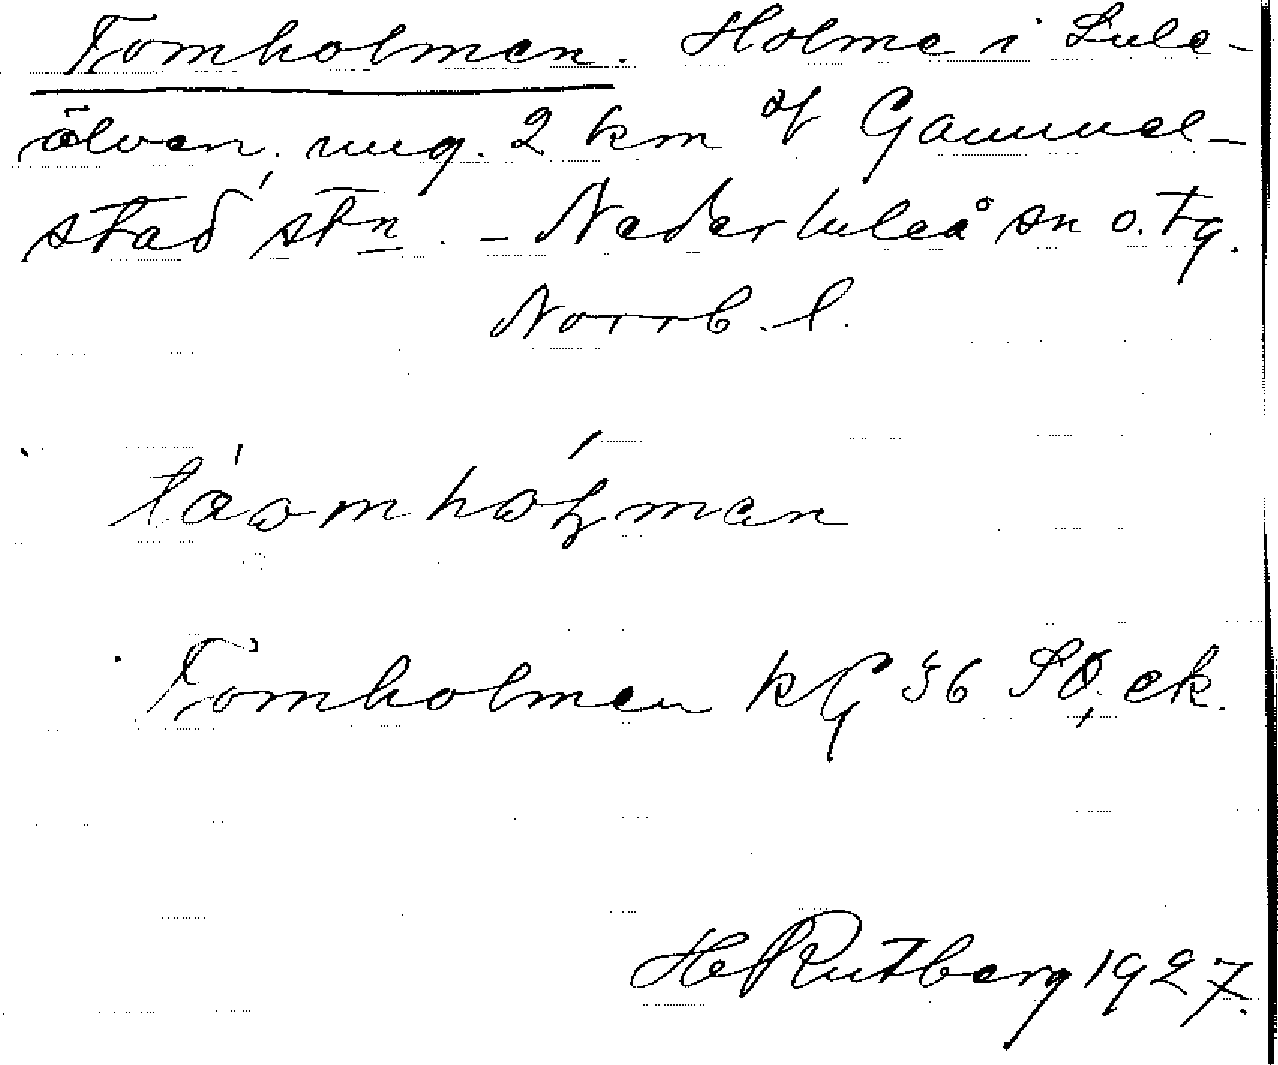 Tomholmen. Holme i Lule-
älven, ung. 2 km of Gammel-
stad stn. – Nederluleå sn o. tg.
Norrb. l.
Tomholmen kG 36 SO, ek.
H Rutberg 1927.